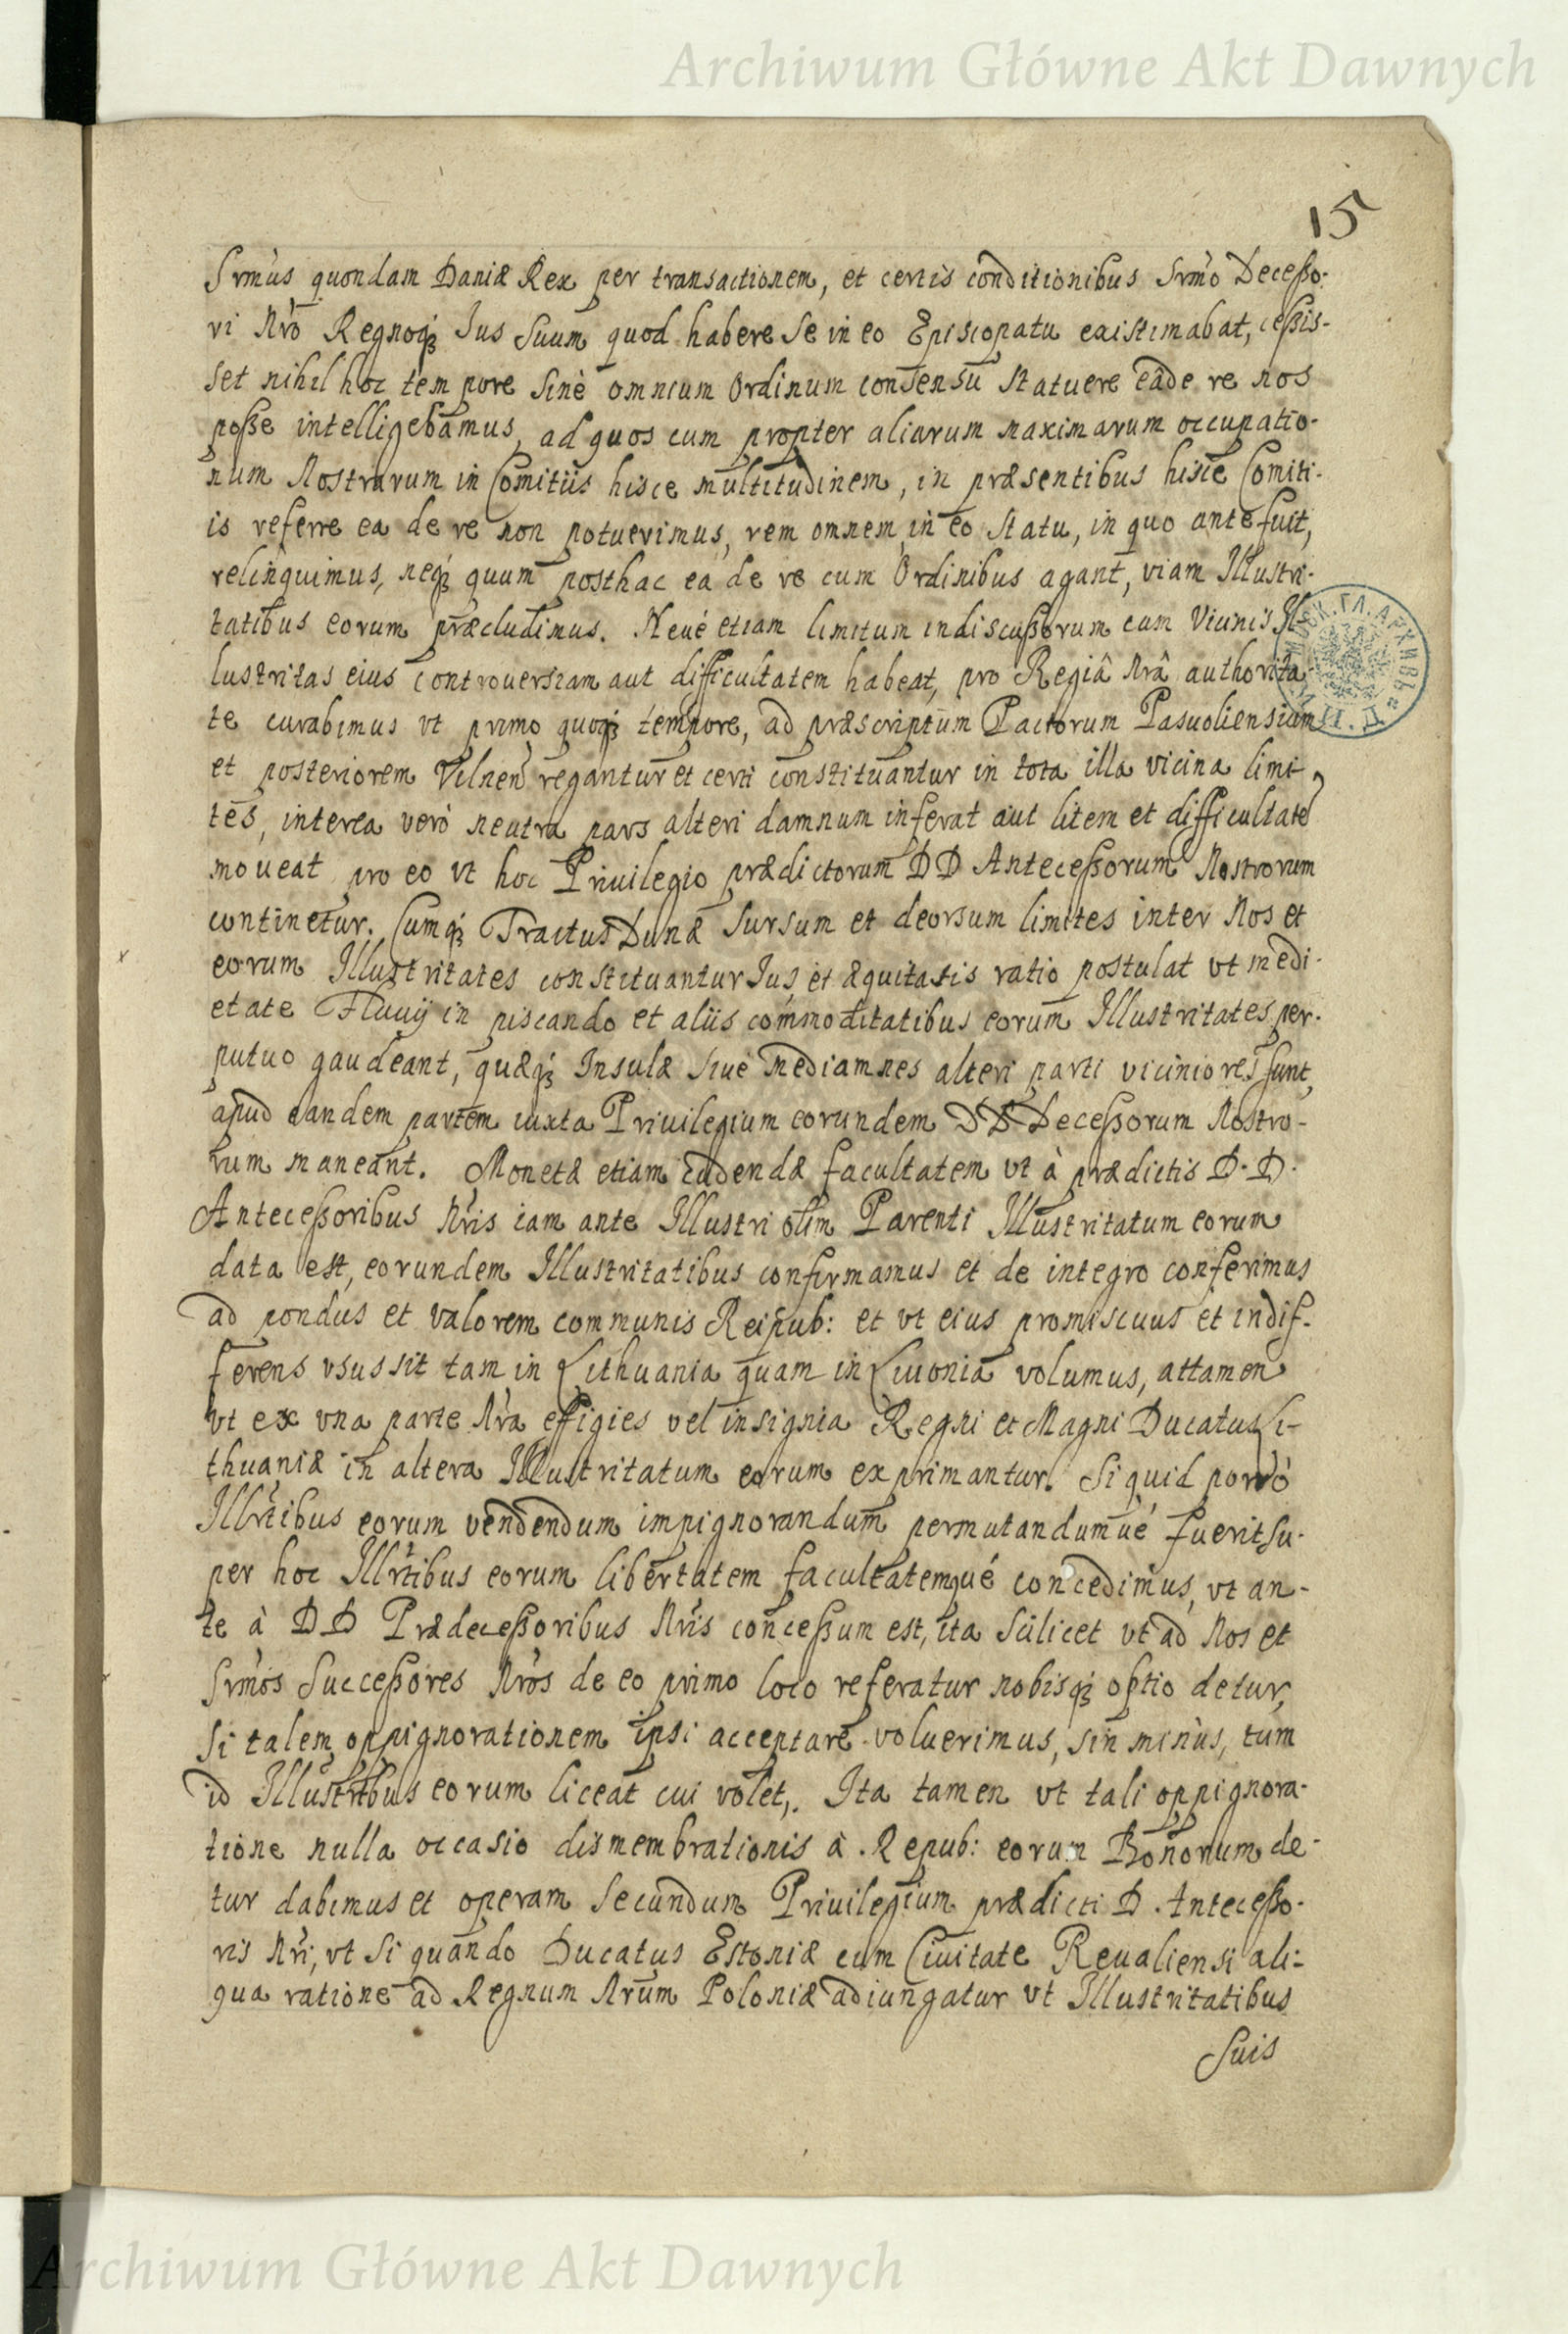 Archiwum Główne Akt Dawnych
15
Srmus quondam Daniæ Rex per transactionem, et certis conditionibus Srmo Decesso-
ri Nro Regnoq₃ Ius suum quod habere se in eo Episcopatu existimabat, cessis-
set nihil hoc tempore sinè omnium Ordinum consensu statuere eâde re nos
posse intelligebamus, ad quos cum propter aliarum maximarum occupatio-
num Nostrarum in Comitiis hisce multitudinem, in præsentibus hisce Comiti-
is referre ea de re non potuerimus, rem omnem in eo statu, in quo ante fuit,
relinquimus, neq₃ quum posthac ea de re cum Ordinibus agant, viam Illustri-
tatibus eorum præcludimus. Neué etiam limitum indiscussorum cum Vicinis Il-
lustritas eius controuersiam aut difficultatem habeat, pro Regiâ Nrâ authorita-
te curabimus vt primo quoq₃ tempore, ad præscriptum Pactorum Pasuoliensium
et posteriorem Vilnen regantur et certi constituantur in tota illa vicina limi-
tes, interea verò neutra pars alteri damnum inferat aut litem et difficultate
moueat pro eo vt hoc Priuilegio prædictorum DD Antecessorum Nostrorum
continetur. Cumq₃ Tractus Dunæ sursum et deorsum limites inter Nos et
eorum Illustritates constituantur Ius et æquitatis ratio postulat vt medi-
etate Fluuij in piscando et aliis commoditatibus eorum Illustritates per-
putuo gaudeant, quæq₃ Insulæ siuè mediamnes alteri parti viciniores sunt,
apud eandem partem iuxta Priuilegium eorundem DD Decessorum Nostro-
rum maneant. Monetæ etiam cudendæ facultatem vt à prædictis D. D.
Antecessoribus Nris iam ante Illustri olim Parenti Illustritatum eorum
data est, eorundem Illustritatibus confirmamus et de integro conferimus
ad pondus et valorem communis Reipub: et vt eius promiscuus et indif-
ferens vsus sit tam in Lithuania quam in Liuonia volumus, attamen
vt ex vna parte Nra effigies vel insignia Regni et Magni Ducatus Li-
thuaniæ in altera Illustritatum eorum exprimantur. Si quid porrò
Illrtibus eorum vendendum impignorandum permutandumué fuerit su-
per hoc Illrtibus eorum libertatem facultatemqué concedimus, vt an-
te à DD Prædecessoribus Nris concessum est, ita scilicet vt ad Nos et
Srmos Successores Nros de eo primo loco referatur nobisq₃ optio detur,
si talem oppignorationem ipsi acceptare voluerimus, sin minùs, tum
id Illustrtbus eorum liceat cui volet,. Ita tamen vt tali oppignora-
tione nulla occasio dismembrationis à Repub: eorum Bonorum de-
tur dabimus et operam secundum Priuilegium prædicti D. Antecesso-
ris Nri, vt si quando Ducatus Estoniæ cum Ciuitate Reualiensi ali-
qua ratione ad Regnum Nrum Poloniæ adiungatur vt Illustritatibus
suis
Archiwum Główne Akt Dawnych